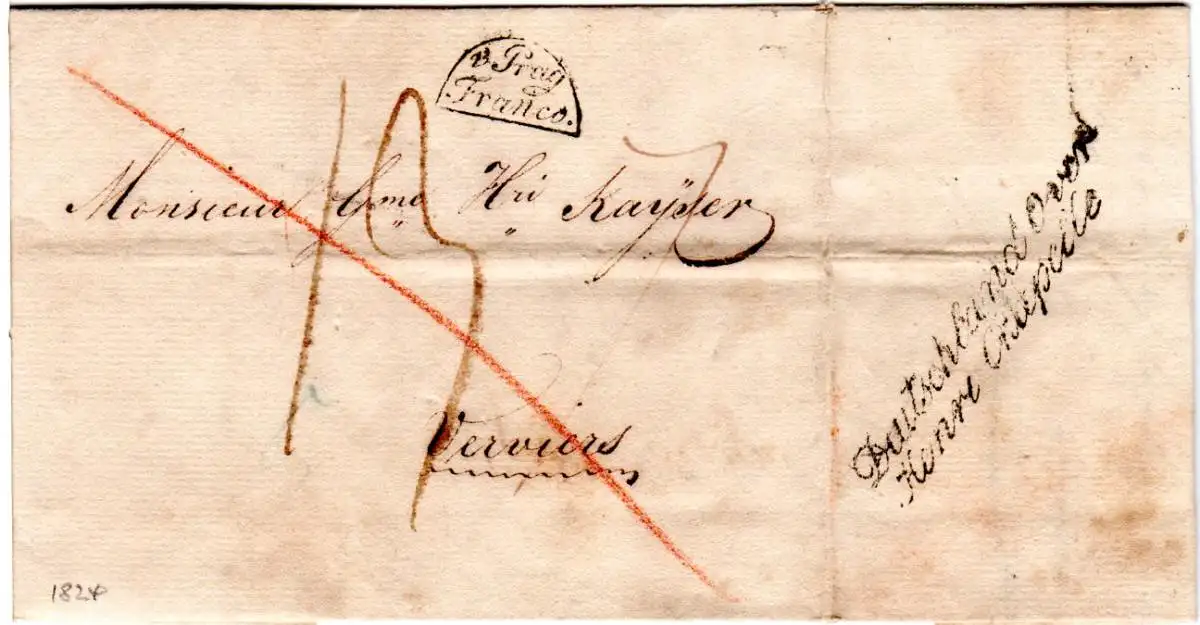 v. Prag
Franco.
13
Monsieur Gme Hri Kayser
Verviers
Deutschland over
Henri Chapelle
182